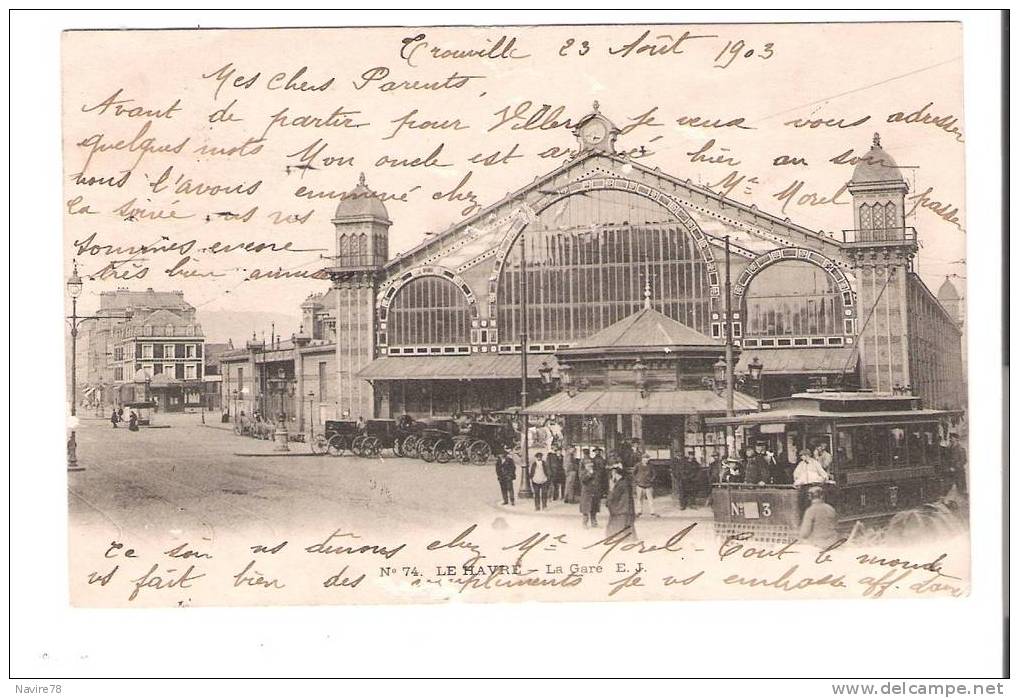 Trouville 23 Août 1903
Mes Chers Parents,
Avant de partir pour Villers je veux vous adresser
quelques mots Mon oncle est arrivé hier au soir
nous l'avons emmené chez Mme Morel passer
la soirée vs ns
sommes encore
très bien amusé
Ce soir ns dinons chez Mme Morel. Tout le monde
vs fait bien des compliments je vs embrasse aff.
No 74. LE HAVRE - La Gare E. J.
No 3
Navire78
www.delcampe.net